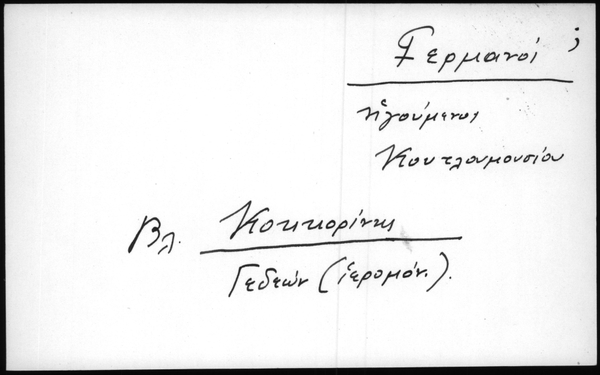 Γερμανοί ;
ἡγούμενοι
Κουτλουμουσίου
Βλ. Κοκκορίνης
Γεδεών (ἱερομόν.).